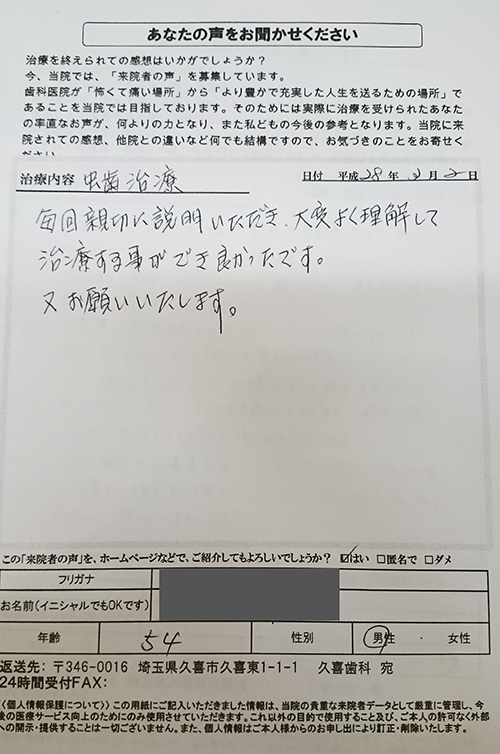 あなたの声をお聞かせください
治療を終えられての感想はいかがでしょうか？
今、当院では、「来院者の声」を募集しています。
歯科医院が「怖くて痛い場所」から「より豊かで充実した人生を送るための場所」で
あることを当院では目指しております。そのためには実際に治療を受けられたあなた
の率直なお声が、何よりの力となり、また私どもの今後の参考となります。当院に来
院されての感想、他院との違いなど何でも結構ですので、お気づきのことをお寄せく
ださい。
治療内容 虫歯治療 日付 平成28年 3月2日
毎回親切に説明いただき、大変よく理解して
治療する事ができ良かったです。
又お願いいたします。
この「来院者の声」を、ホームページなどで、ご紹介してもよろしいでしょうか？ ☑はい □匿名で □ダメ
フリガナ
お名前(イニシャルでもOKです)
年齢 54 性別 男性 ・ 女性
返送先：〒346-0016 埼玉県久喜市久喜東1-1-1 久喜歯科 宛
24時間受付FAX：
《個人情報保護について》この用紙にご記入いただきました情報は、当院の貴重な来院者データとして厳重に管理し、今
後の医療サービス向上のためにのみ使用させていただきます。これ以外の目的で使用すること及び、ご本人の許可なく外部
への開示・提供することは一切ございません。また、個人情報はご本人様からのお申し出により訂正・削除いたします。